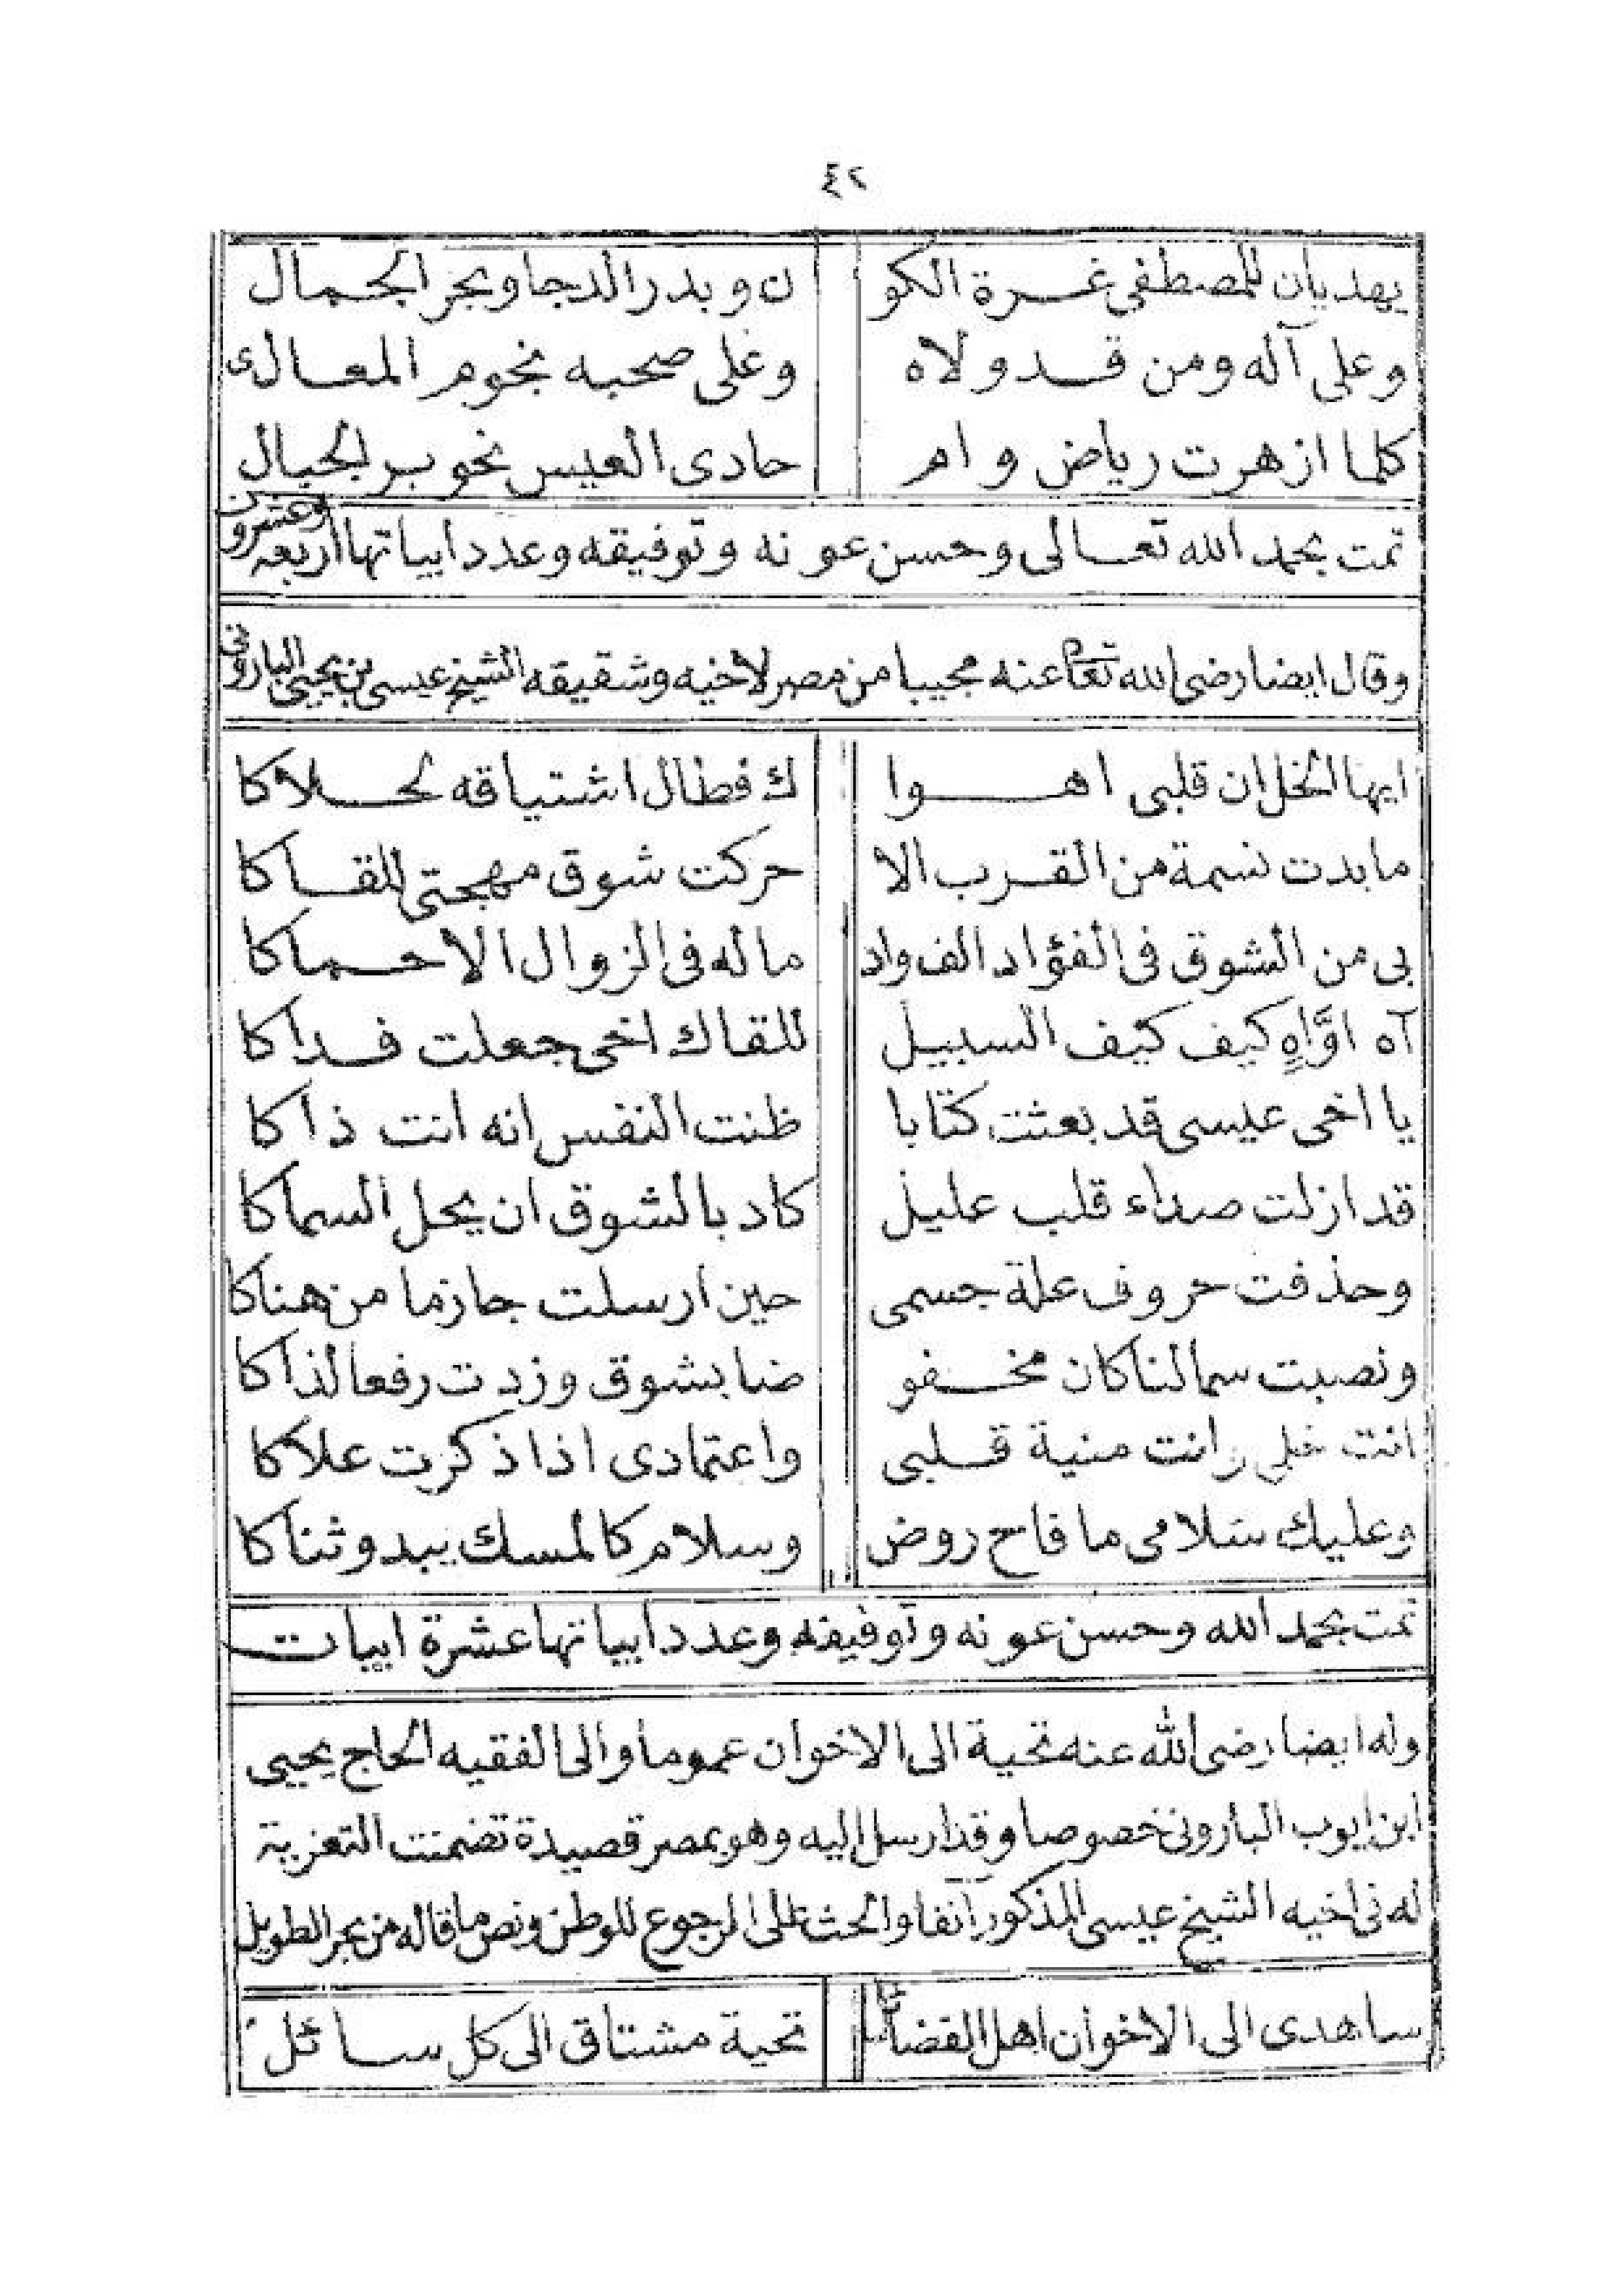 ٤٢
يهديان للمصطفى غرة الكو ن وبدر الدجا وبحر الجمال
وعلى آله ومن قد ولاه وعلى صحبه نجوم المعالى
كلما ازهرت رياض وام حادى العيس نحو بر الحبال
تمت بحمد الله تعالى وحسن عونه وتوفيقه وعدد ابياتها اربعه وعشرون
وقال ايضا رضى الله تعا عنه مجيبا من مصر لاخيه وشقيقه الشيخ عيسى بن يحيى البارونى
ايها الخل ان قلبى اهوا ك فطال اشتياقه لحلاكا
ما بدت نسمة من القرب الا حركت شوق مهجتى للقاكا
بى من الشوق فى الفؤاد الف واد ماله فى الزوال الا حماكا
آه اوَّاهِ كيف كيف السبيل للقاك اخى جعلت فداكا
يا اخى عيسى قد بعثت كتابا ظنت النفس انه انت ذاكا
قد ازلت صداء قلب عليل كاد بالشوق ان يحل السماكا
وحذفت حروف علة جسمى حين ارسلت جازما من هناكا
ونصبت سما لنا كان مخفو ضا بشوق وزدت رفعا لذاكا
انت خلى وانت منية قلبى واعتمادى اذا ذكرت علاكا
وعليك سلامى ما فاح روض وسلام كالمسك يبدو ثناكا
تمت بحمد الله وحسن عونه وتوفيقه وعدد ابياتها عشرة ابيات
وله ايضا رضى الله عنه تحية الى الاخوان عموما والى الفقيه الحاج يحيى
ابن ايوب البارونى خصوصا وقد ارسل اليه وهو بمصر قصيدة تضمنت التعزية
له فى اخيه الشيخ عيسى المذكور آنفا والحث الى الرجوع للوطن ونص ما قاله من بحر الطويل
ساهدى الى الاخوان اهل الفضائل تحية مشتاق الى كل سائل